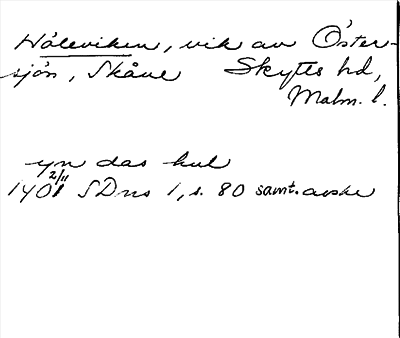 Håleviken, vik av Öster-
sjön, Skåne Skytts hd,
Malm. l.
yn das hul
1401 2/11 SDns 1, s. 80 samt. avskr